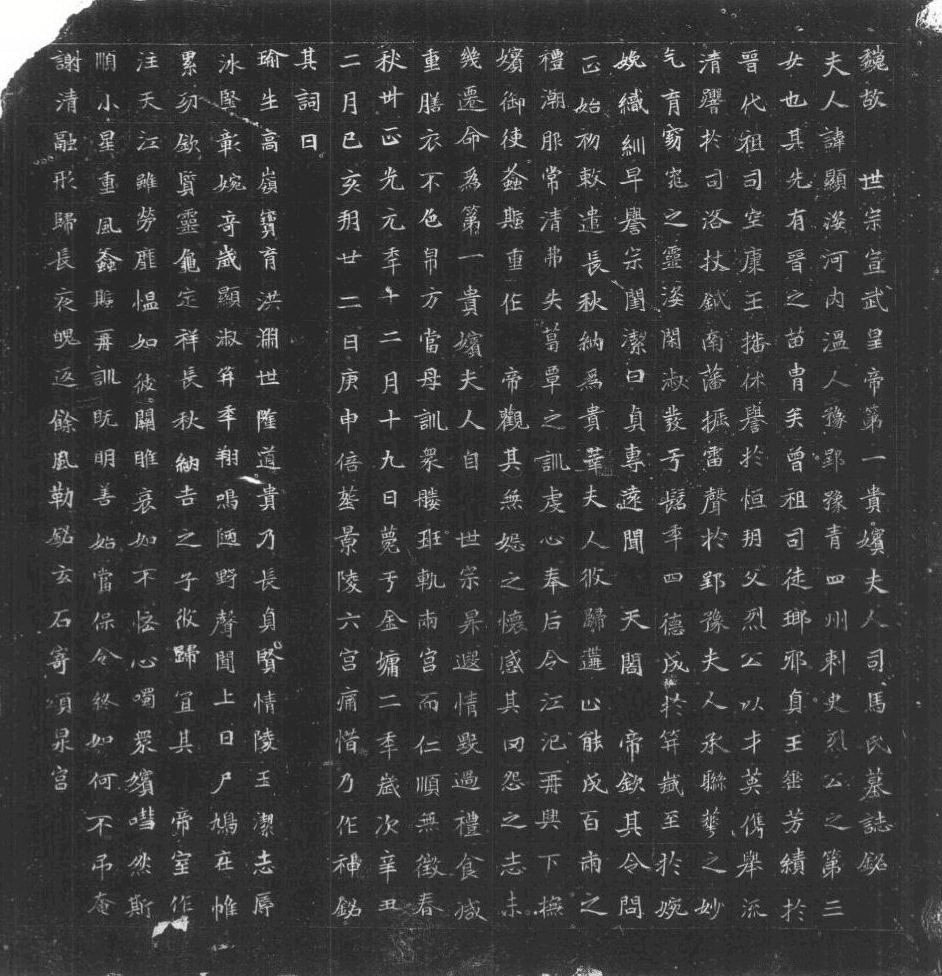 魏故　世宗宣武皇帝第一貴嬪夫人司馬氏墓誌銘
夫人諱顯姿河內溫人豫郢豫青四州刺史烈公之第三
女也其先有晉之苗胄矣曾祖司徒瑯邪貞王垂芳績於
晉代祖司空康王播休譽於恒朔父烈公以才英儁舉流
清響於司洛杖鉞南藩振雷聲於郢豫夫人承聯華之妙
气育窈窕之靈姿閑淑發于髫年四德成於笄歲至於婉
娩織紃早譽宗閨潔白貞專遠聞　天閤　帝欽其令問
正始初敕遣長秋納為貴華夫人攸歸遘止能成百兩之
禮潮服常清弗失葛覃之訓虔心奉后令江汜再興下撫
嬪御使螽斯重作　帝觀其無妬之懷感其罔怨之志未
幾遷命為第一貴嬪夫人自　世宗昇遐情毀過禮食減
重膳衣不色帛方當母訓眾媵班軌兩宮而仁順無徵春
秋卅正光元年十二月十九日薨于金墉二年歲次辛丑
二月己亥朔廿二日庚申倍葬景陵六宮痛惜乃作神銘
其詞曰
瑜生高嶺寶育洪淵世隆道貴乃長貞賢情陵玉潔志厲
冰堅彰婉奇歲顯淑笄年翔鳴陋野聲聞上日尸鳩在帷
累朞欽質靈龜定祥長秋納吉之子攸歸宜其　帝室作
注天江雖勞靡慍如彼關雎哀如不恡心噣眾嬪嘒然斯
順小星重風螽斯再訓既明善始當保令終如何不弔奄
謝清融形歸長夜魄返餘風勒銘玄石寄頌泉宮